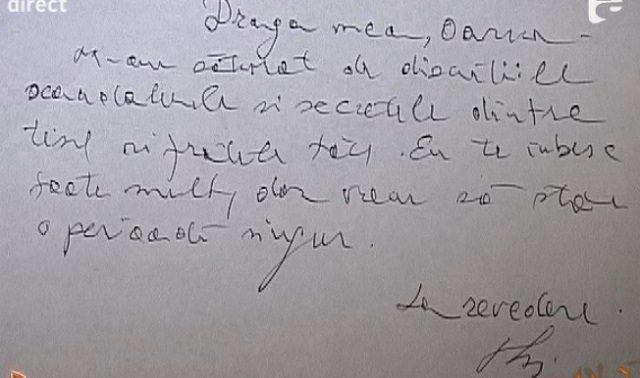 direct
Draga mea, Oana -
M-am săturat de discuțiile
scandalurile si secretele dintre
tine si frații tăi. Eu te iubesc
foarte mult, dar vreau să stau
o perioadă singur.
La revedere.